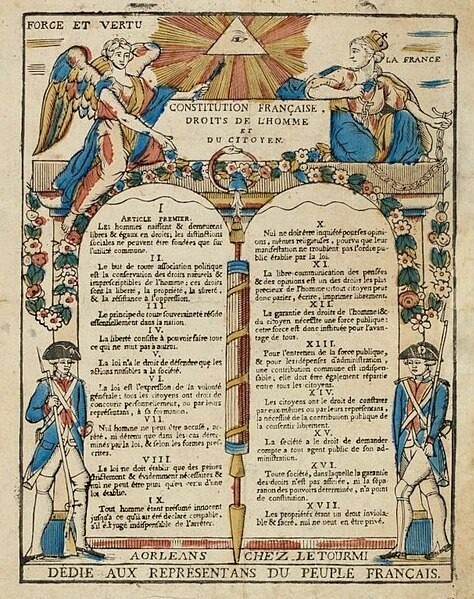 FORCE ET VERTU
LA FRANCE
CONSTITUTION FRANÇAISE,
DROITS DE L'HOMME
ET
DU CITOYEN.
I
ARTICLE PREMIER.
Les hommes naissent & demeurent
libres & égaux en droits; les distinctions
sociales ne peuvent être fondées que sur
l'utilité commune.
II.
Le but de toute association politique
est la conservation des droits naturels &
imprescriptibles de l'homme; ces droits
sont la liberté, la propriété, la sûreté,
& la résistance à l'oppression.
III.
Le principe de toute souveraineté réside
essentiellement dans la nation.
IV.
La liberté consiste à pouvoir faire tout
ce qui ne nuit pas à autrui.
V.
La loi n'a le droit de défendre que les
actions nuisibles a la société.
VI.
La loi est l'expression de la volonté
générale; tous les citoyens ont droit de
concourir personnellement, ou par leurs
représentans, à sa formation.
VII.
Nul homme ne peut être accusé, arrêté, ni détenu que dans les cas déterminés par la loi, & selon les formes prescrites.
VIII
La loi ne doit établir que des peines
strictement & évidemment nécessaires &
nul ne peut être puni qu'en vertu d'une
loi établie.
IX
Tout homme étant présumé innocent
jusqu'à ce qu'il ait été déclaré coupable,
s'il est jugé indispensable de l'arrêter.
X
Nul ne doit être inquiété pour ses opinions, mêmes religieuses, pourvu que leur
manifestation ne troublent pas l'ordre public établie par la loi.
XI.
La libre communication des pensées
& des opinions est un des droits les plus
précieux de l'homme: tout citoyen peut
donc parler, écrire, imprimer librement.
XII.
La garantie des droits de l'homme &
du citoyen nécessite une force publique:
cette force est donc instituée pour l'avantage de tous.
XIII.
Pour l'entretien de la force publique,
& pour les dépenses d'administration,
une contribution commune est indispensable; elle doit être également répartie
entre tous les citoyens.
XIV.
Les citoyens ont le droit de constater
par eux mêmes ou par leurs représentans,
la nécessité de la contribution publique de
la consentir librement.
XV.
La société a le droit de demander
compte a tout agent public de son administration.
XVI.
Toute société, dans laquelle la garantie
des droits n'est pas assurée, ni la séparation des pouvoirs déterminée, n'a point
de constitution.
XVII
Les propriétés étant un droit inviolable & sacré, nul ne peut en être privé.
A ORLEANS CHEZ LETOURMI
DÉDIE AUX REPRÉSENTANS DU PEUPLE FRANÇAIS.